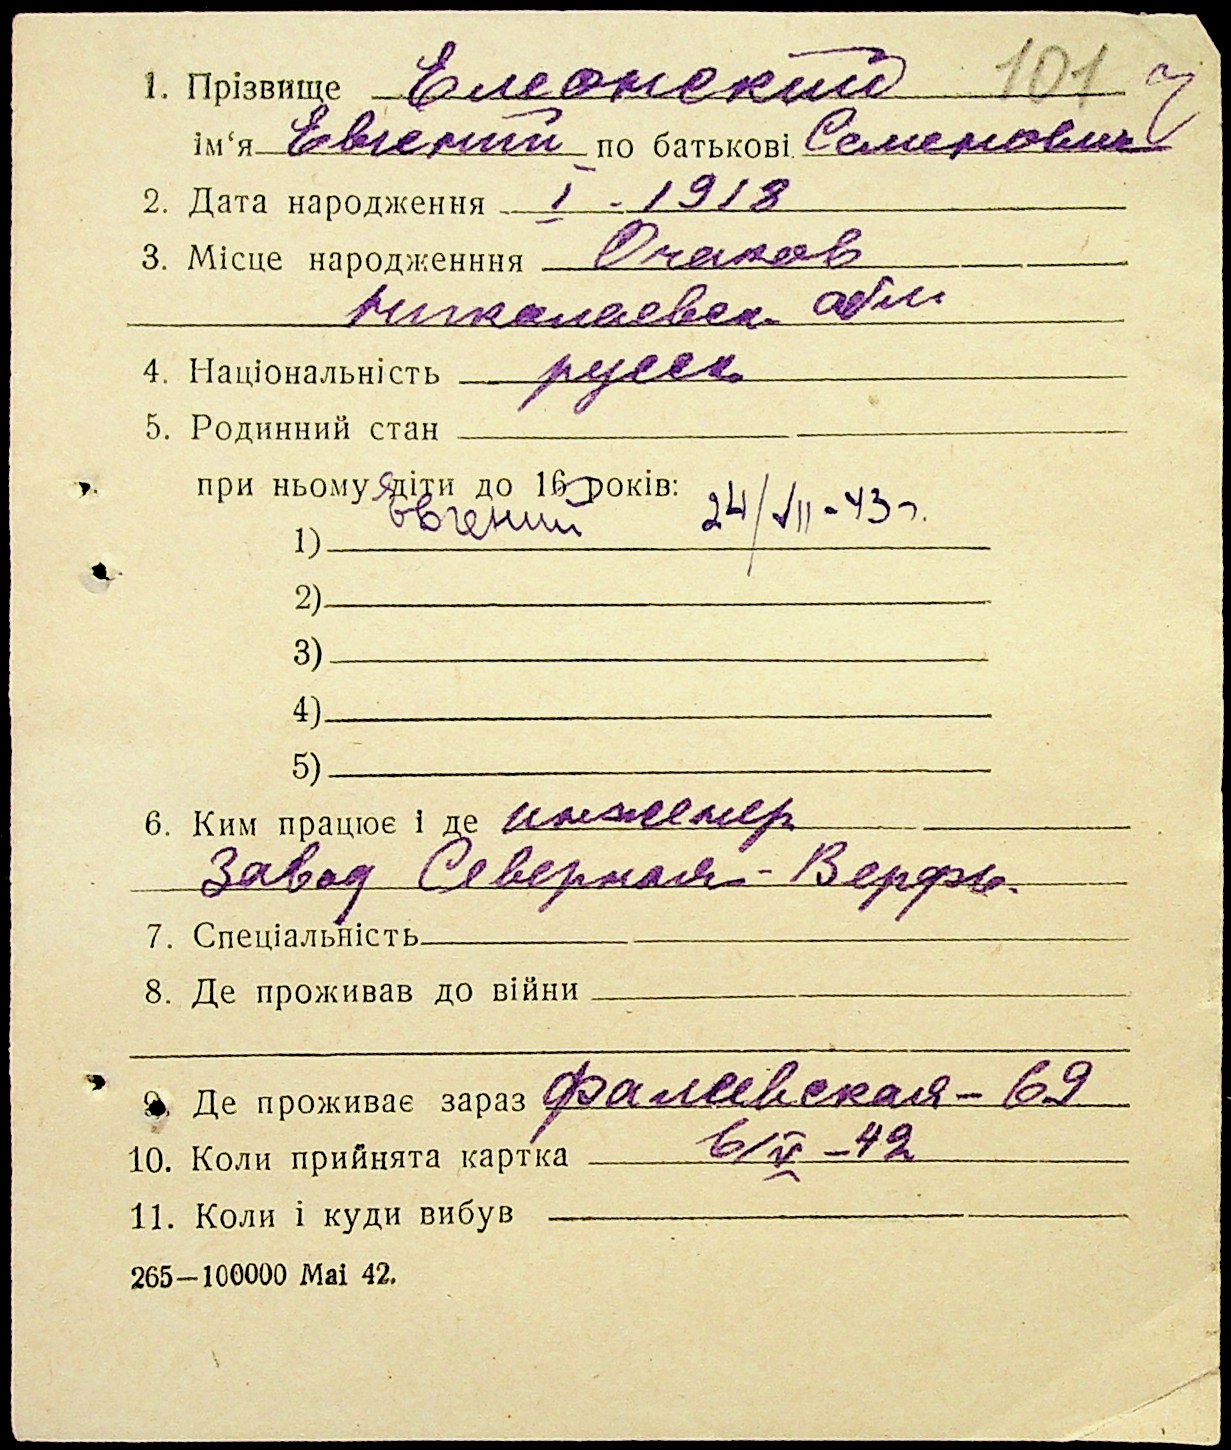 101
1. Прізвище Елеонский
ім‘я Евгений по батькові Семенович
2. Дата народження I - 1918
3. Місце народженння Очаков
Николаевск. обл.
4. Національність русск.
5. Родинний стан
при ньому діти до 16 років:
1) Евгений 24/VII-43 г.
2)
3)
4)
5)
6. Ким працює і де инженер
Завод Северная - Верфь.
7. Спеціальність
8. Де проживав до війни
9. Де проживає зараз Фалеевская - 69
10. Коли прийнята картка 6/V - 42
11. Коли і куди вибув
265—100000 Mai 42.